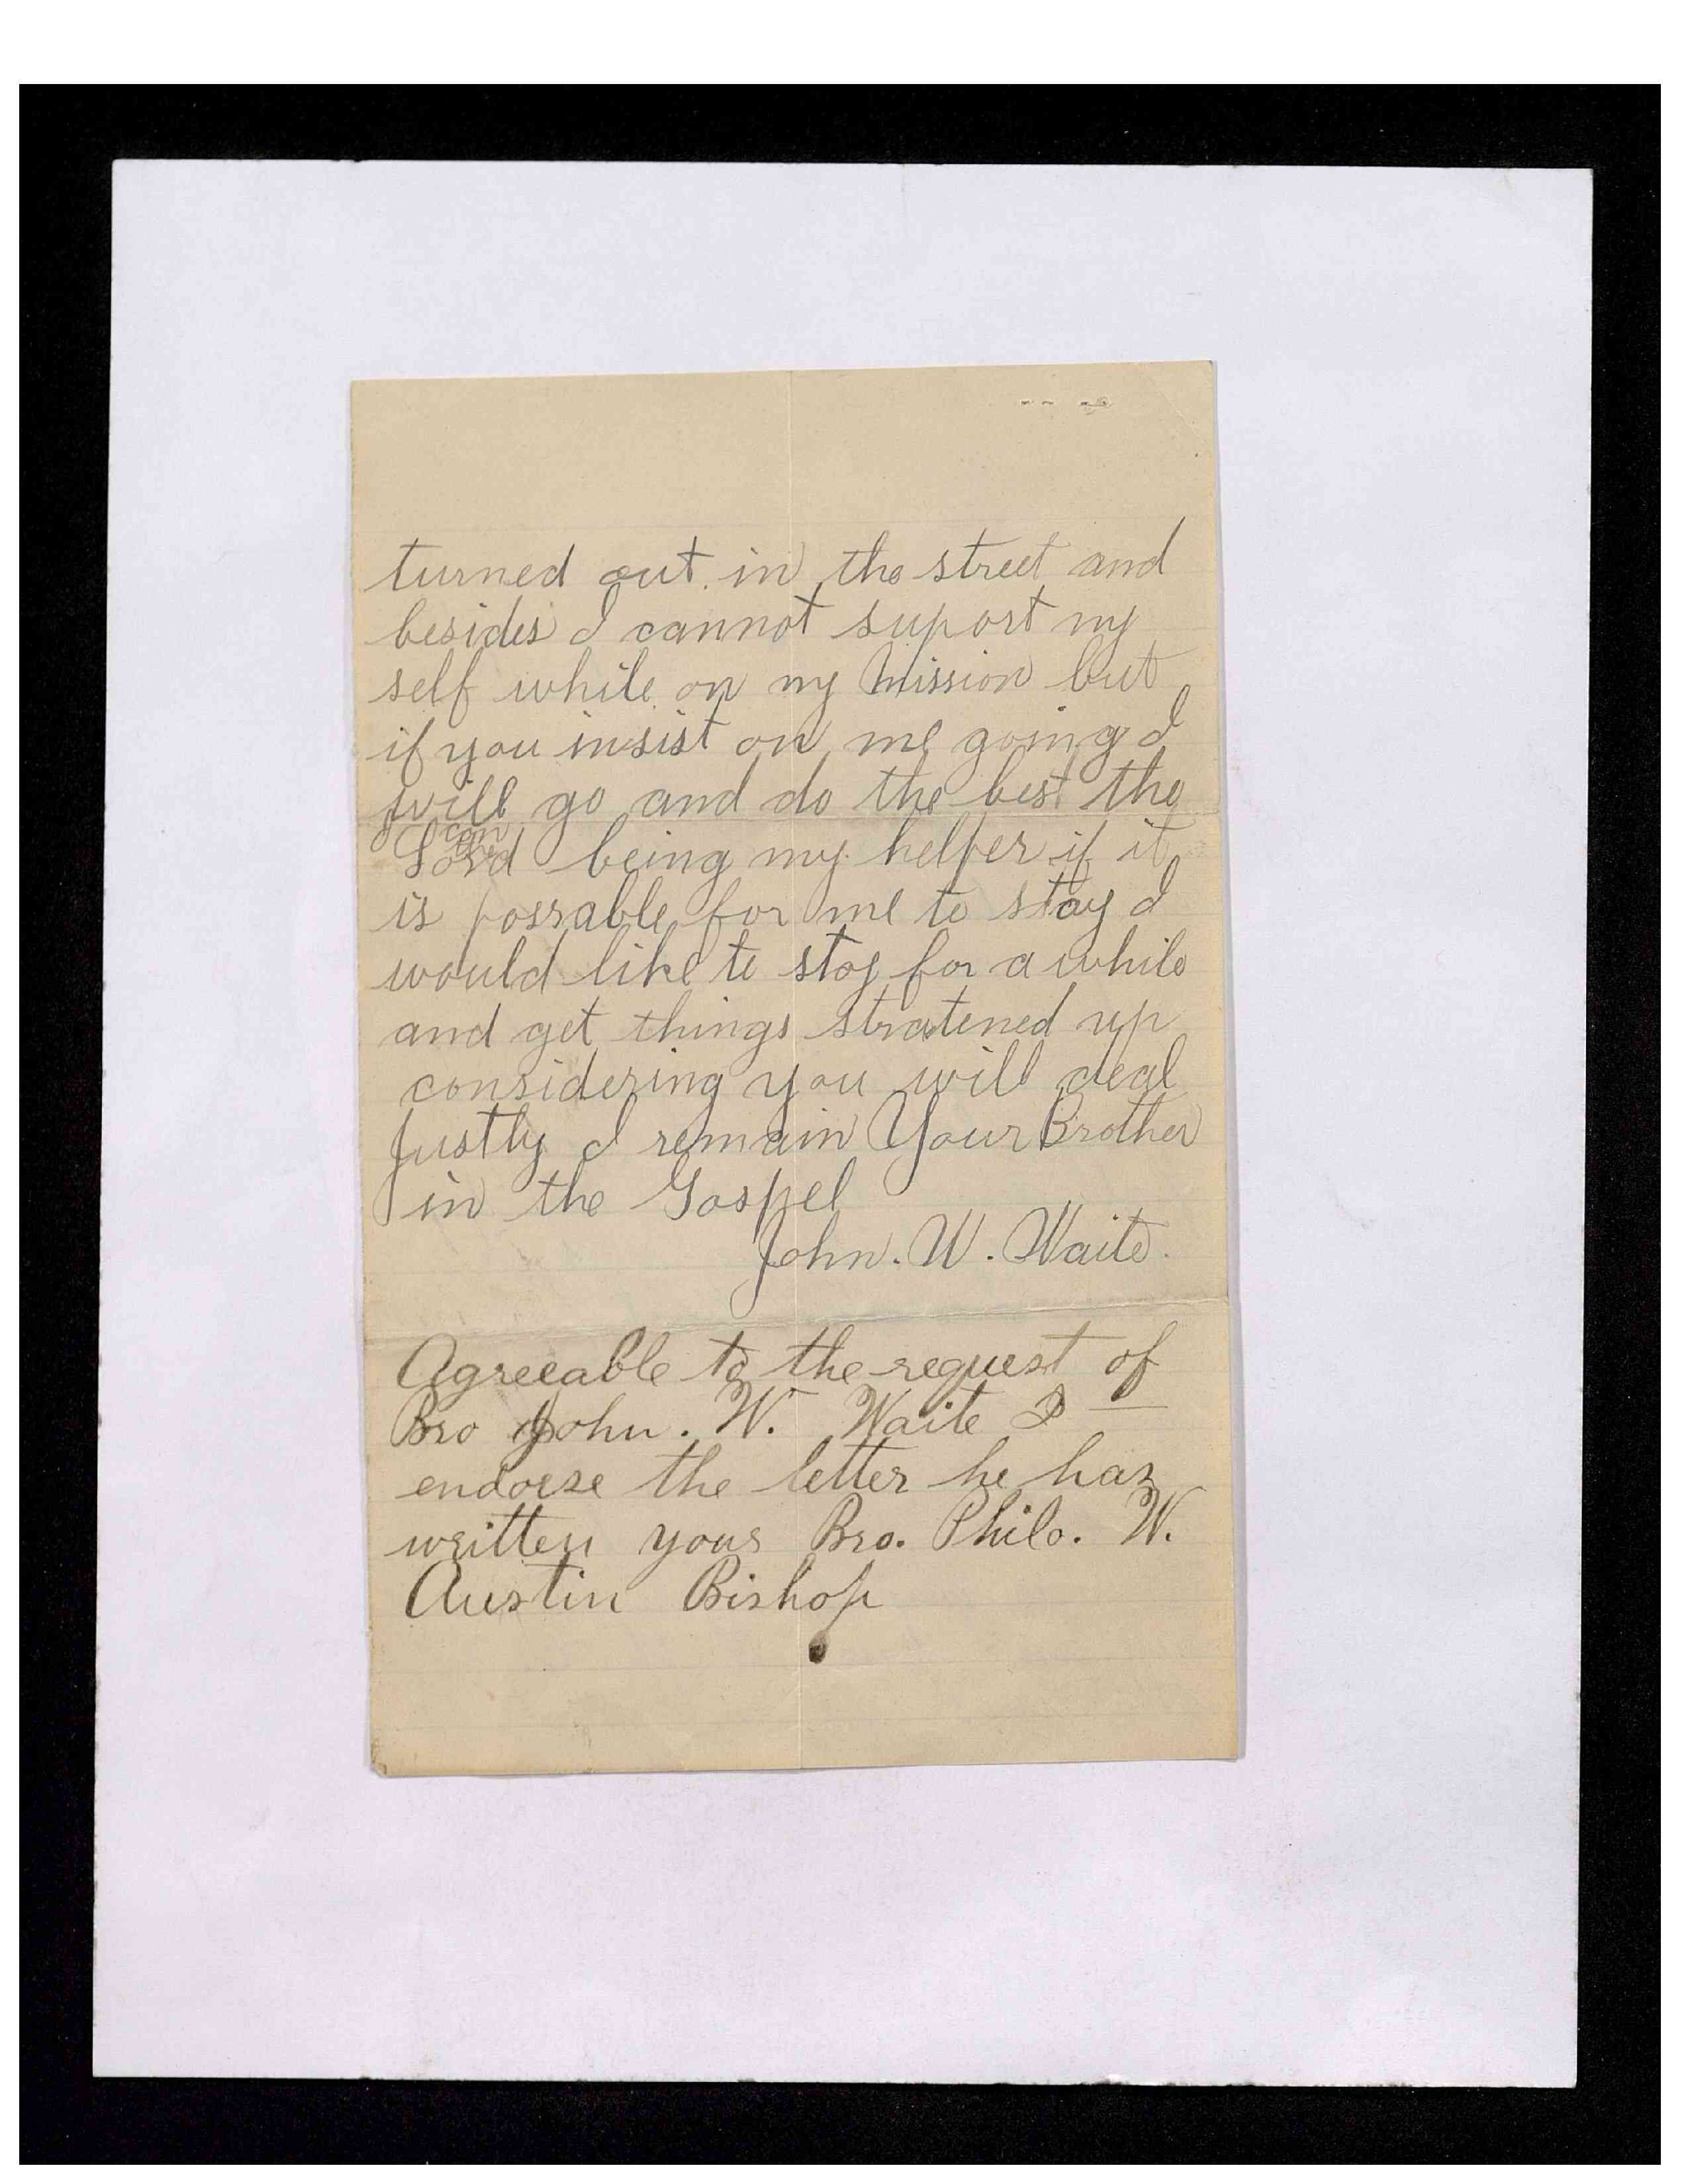 turned out in the street and
besides I cannot suport my
self while on my Mission but
if you insist on me going I
will go and do the best the
I can the
Lord being my helper if it
is possable for me to stay I
would like to stay for a while
and get things stratened up
considering you will deal
Justly I remain Your Brother
in the Gospel
John. W. Waite.
Agreeable to the request of
Bro John. W. Waite I
endorse the letter he has
written yours Bro. Philo. W.
Austin Bishop